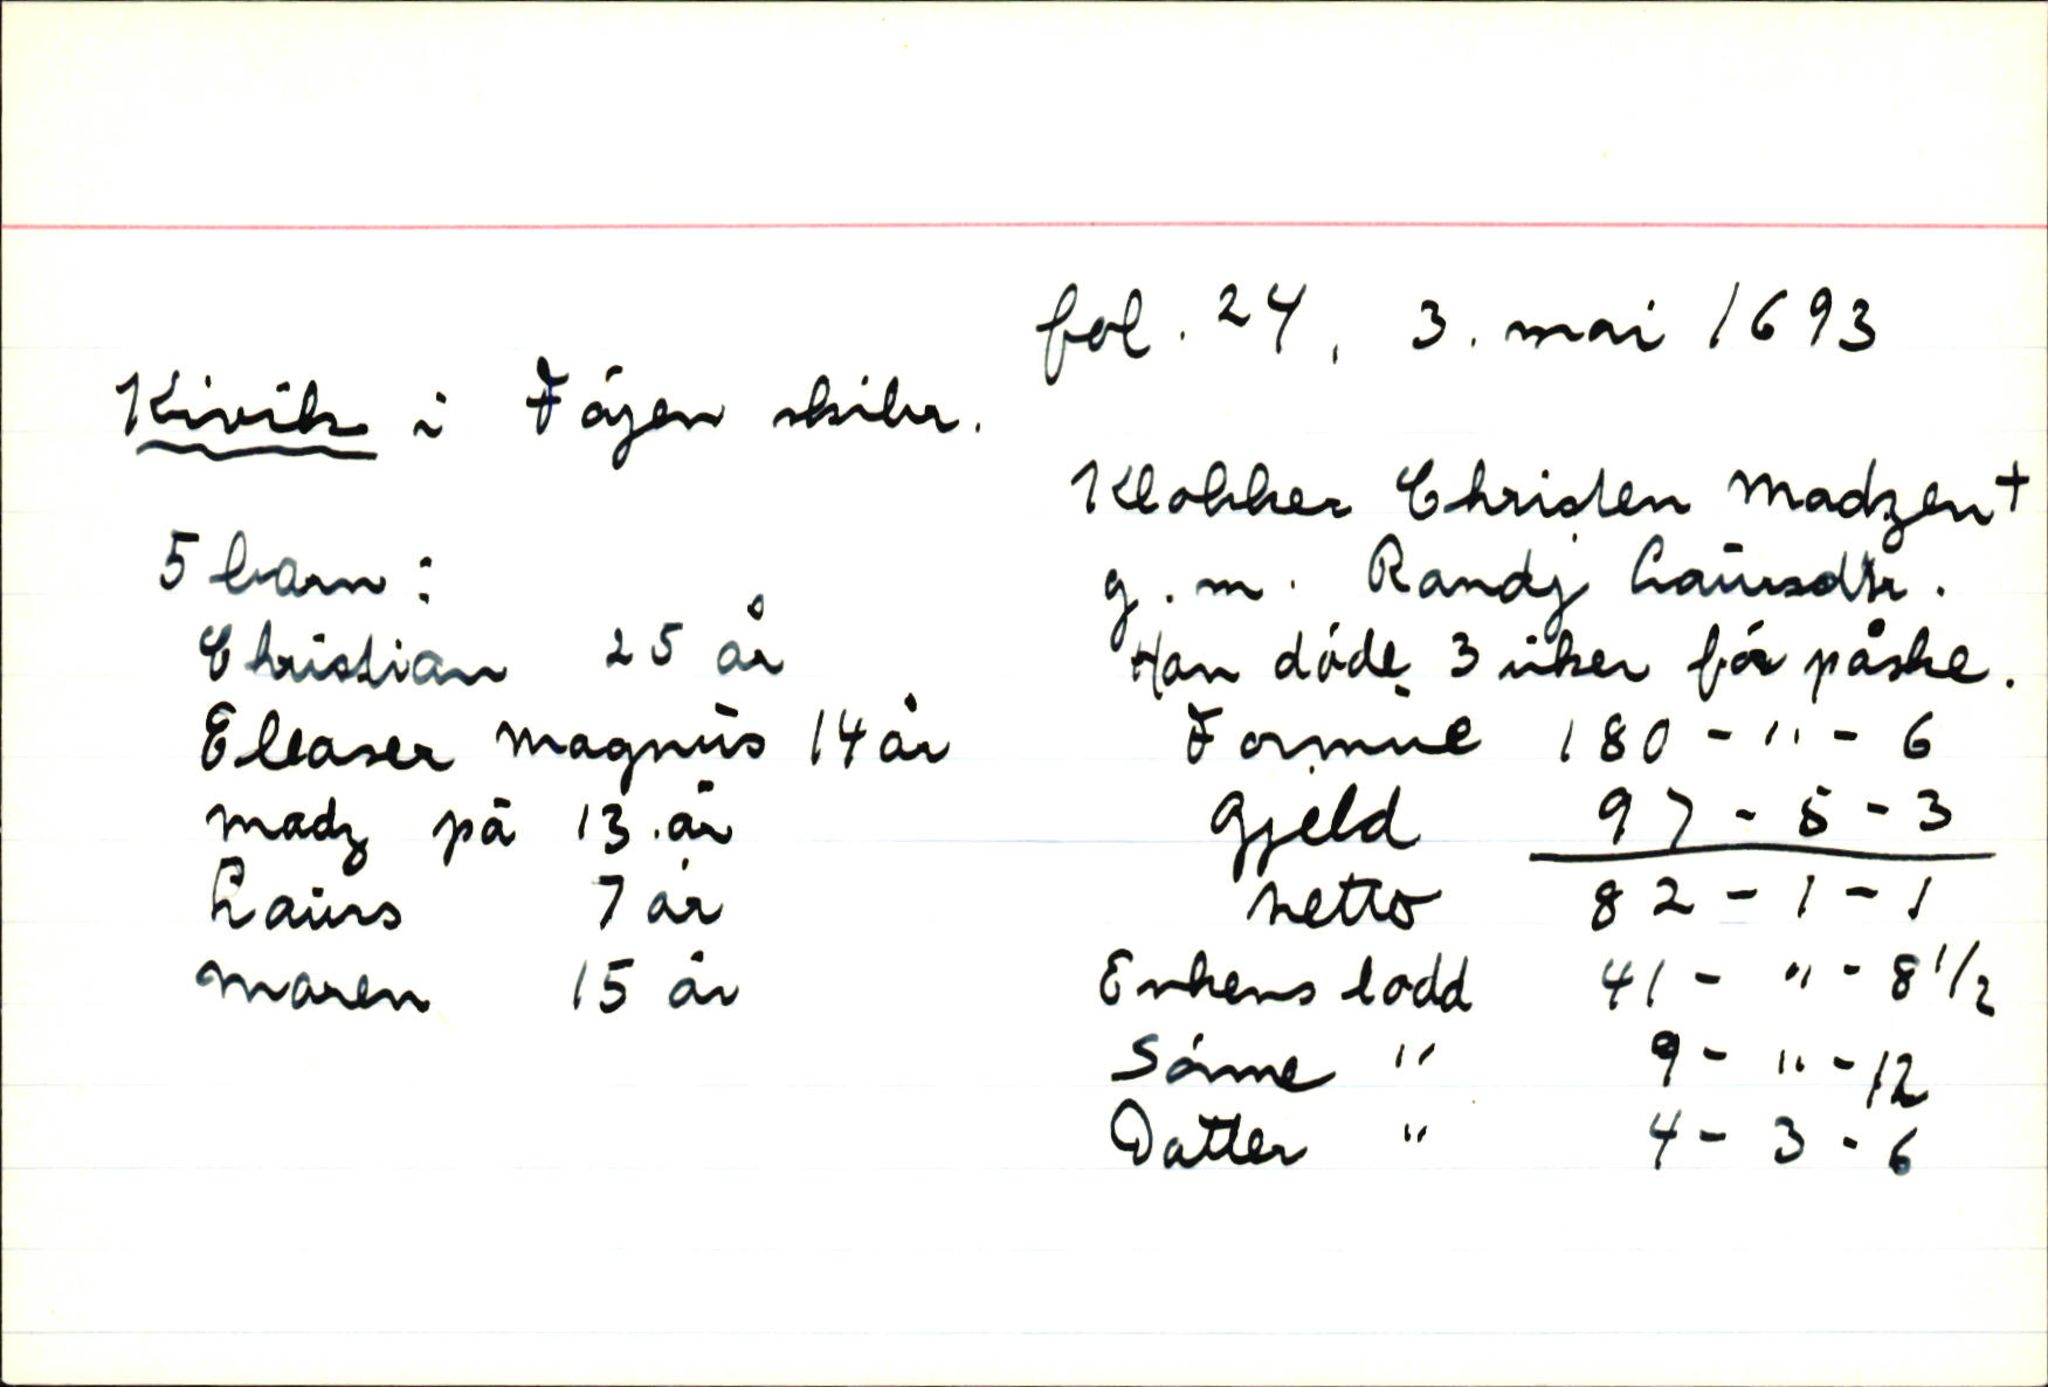 fol. 24, 3. mai 1693
Kivik i Føyen skibr.
Klokker Christen Madzen +
g. m. Randj Laursdtr.
Han døde 3 uker før påske.
5 barn:
Christian 25 år
Eleaser Magnus 14 år
Madz på 13. år
Laurs 7 år
Maren 15 år
Formue 180 - " - 6
Gjeld 97 - 5 - 3
Netto 82 - 1 - 1
Enkens lodd 41 - " - 8 1/2
Sønne " 9 - " - 12
Datter " 4 - 3 - 6